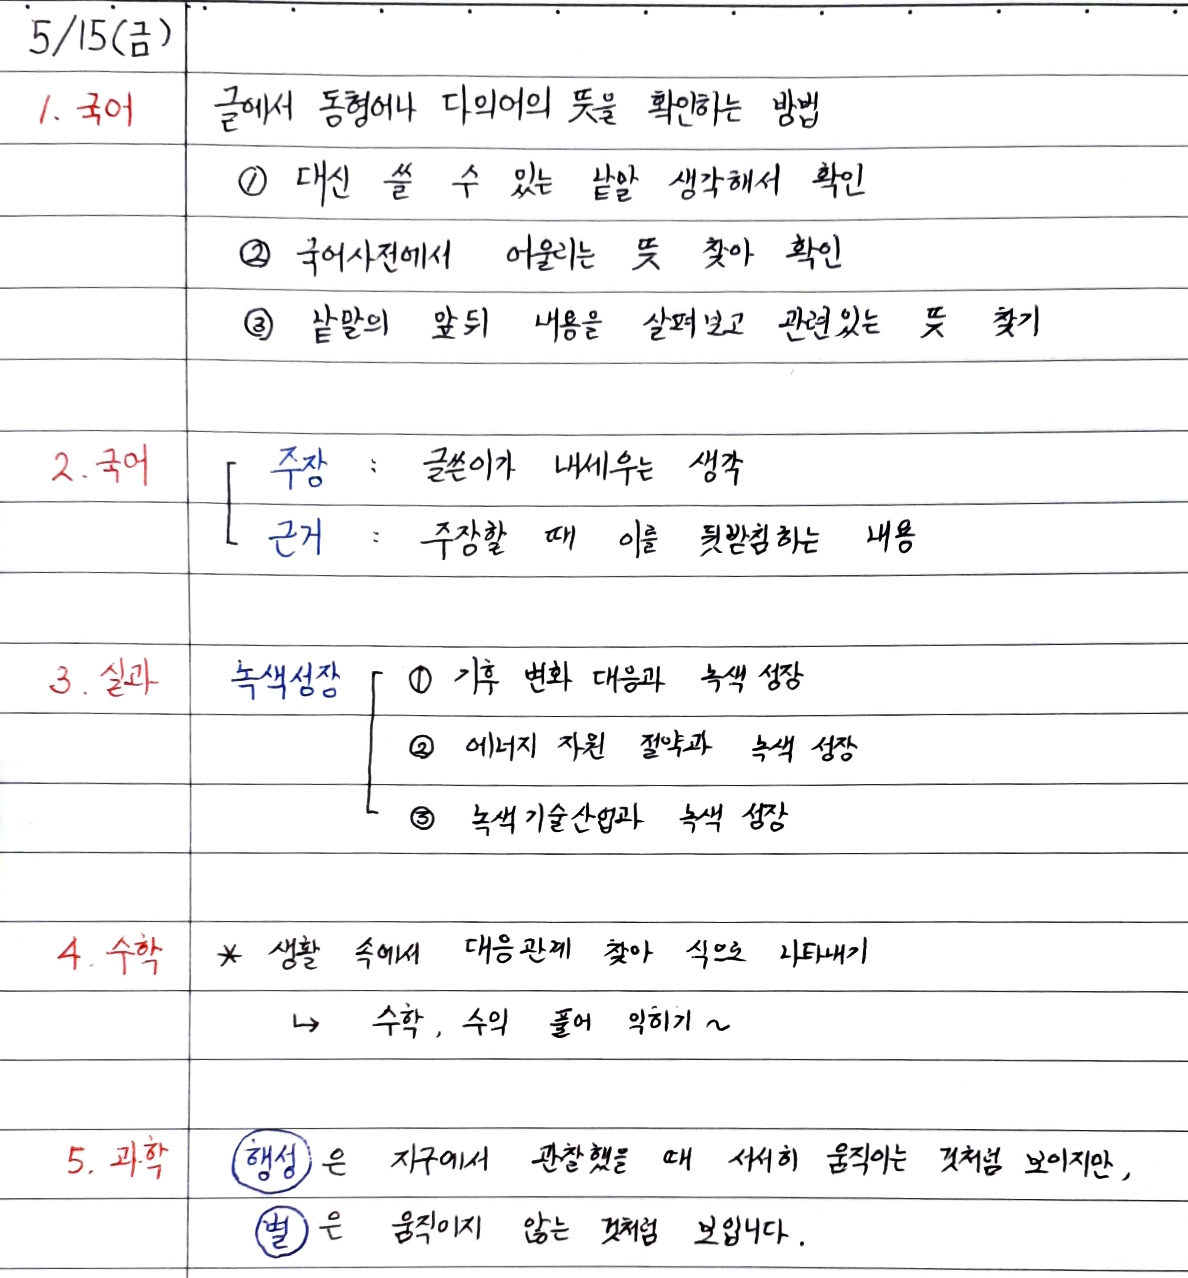 5/15(금)
1. 국어 글에서 동형어나 다의어의 뜻을 확인하는 방법
① 대신 쓸 수 있는 낱말 생각해서 확인
② 국어사전에서 어울리는 뜻 찾아 확인
③ 낱말의 앞뒤 내용을 살펴보고 관련있는 뜻 찾기
2. 국어 주장 : 글쓴이가 내세우는 생각
근거 : 주장할 때 이를 뒷받침하는 내용
3. 실과 녹색성장 ① 기후 변화 대응과 녹색 성장
② 에너지 자원 절약과 녹색 성장
③ 녹색기술산업과 녹색 성장
4. 수학 * 생활 속에서 대응관계 찾아 식으로 나타내기
↳ 수학, 수익 풀어 익히기~
5. 과학 행성은 지구에서 관찰했을 때 서서히 움직이는 것처럼 보이지만,
별은 움직이지 않는 것처럼 보입니다.